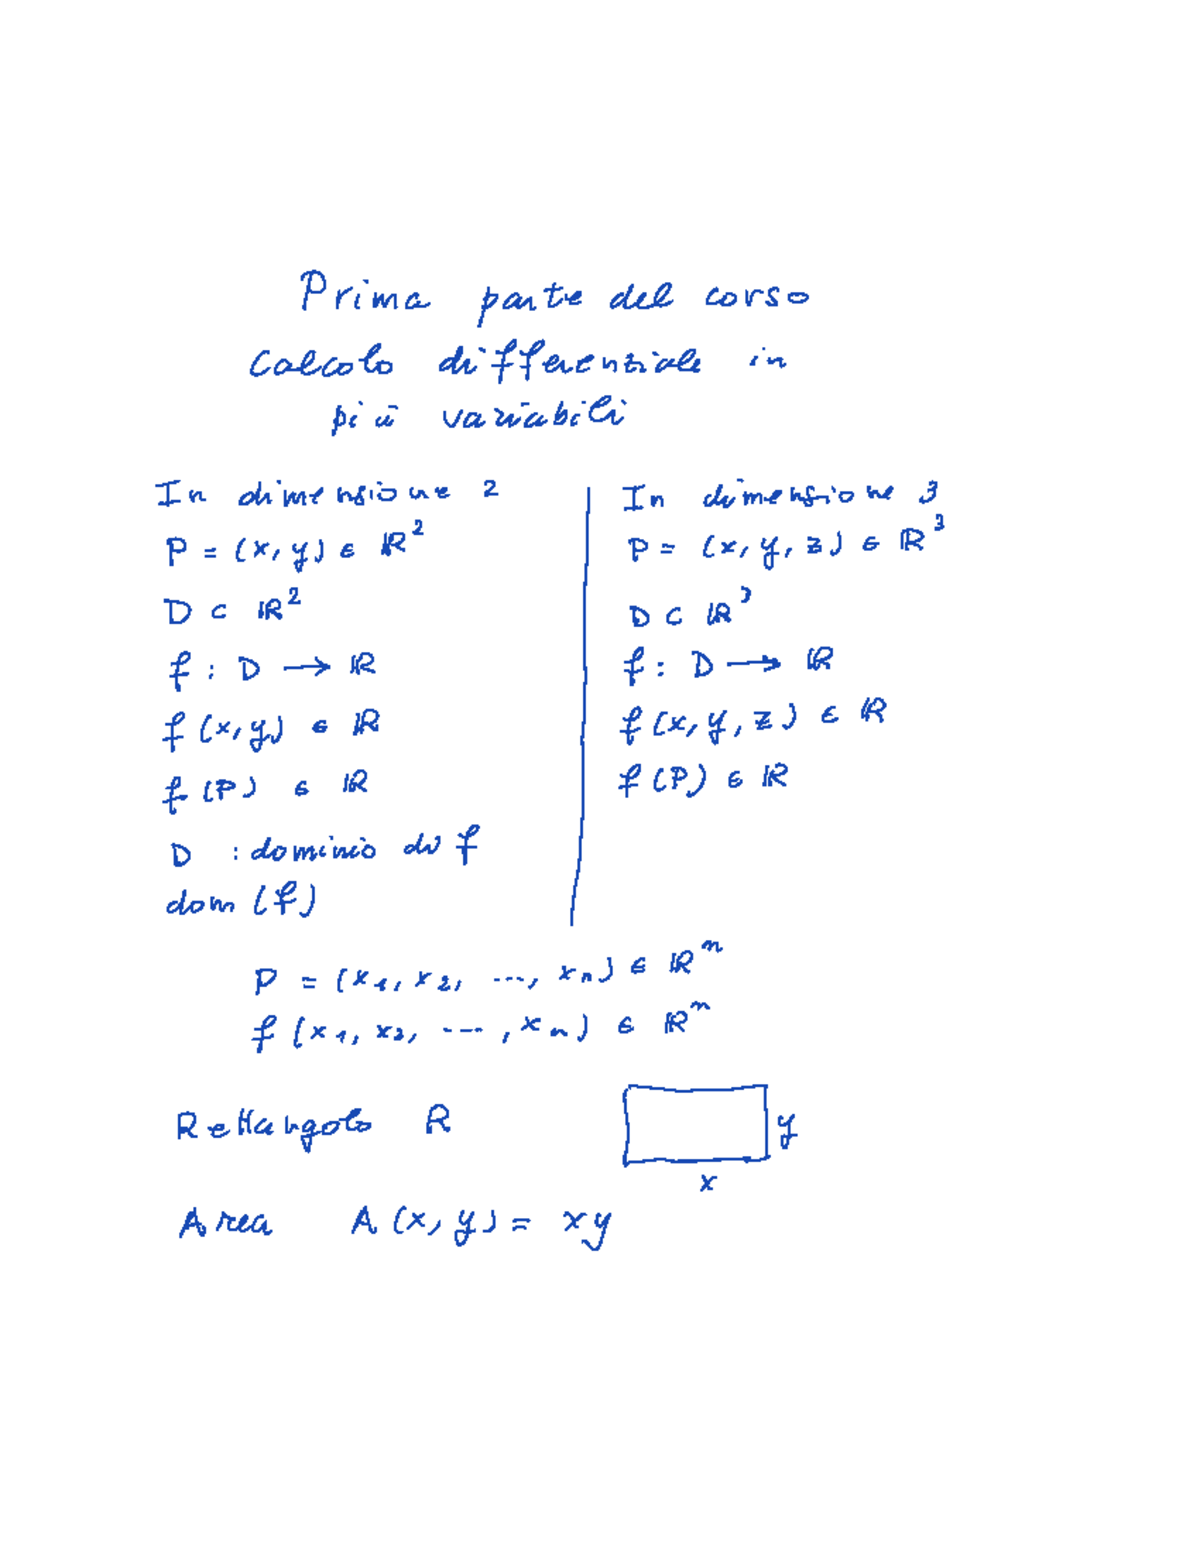 Prima parte del corso
Calcolo differenziale in
più variabili
In dimensione 2
P = (x, y) ∈ ℝ²
D ⊂ ℝ²
f : D → ℝ
f (x, y) ∈ ℝ
f (P) ∈ ℝ
D : dominio di f
dom (f)
In dimensione 3
P = (x, y, z) ∈ ℝ³
D ⊂ ℝ³
f : D → ℝ
f (x, y, z) ∈ ℝ
f (P) ∈ ℝ
P = (x₁, x₂, ..., xₙ) ∈ ℝⁿ
f (x₁, x₂, ..., xₙ) ∈ ℝⁿ
Rettangolo R
y
x
Area A (x, y) = xy